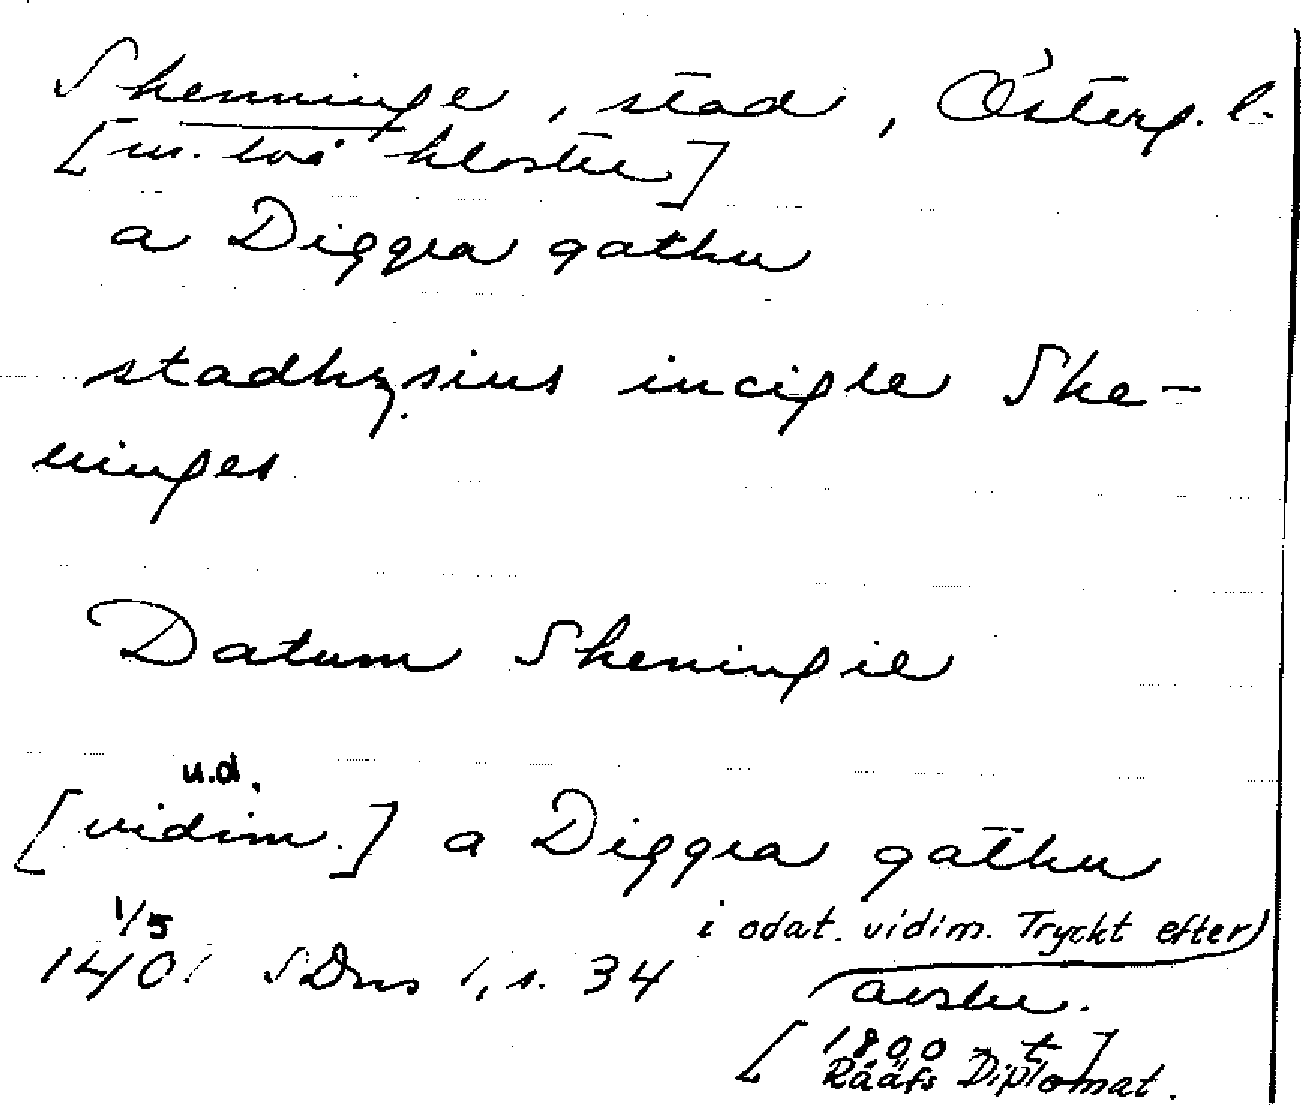 Skenninge, stad, Österg. l.
[m. två kloster]
a Diggra gathu
stadhzsins inciple Ske-
ninges
Datum Skeningie
u.d.
[vidim.] a Diggra gathu
1/5 i odat. vidim. Tryckt efter
1401 SDns 1, s. 34 avskr.
[1800 t]
Rääfs Diplomat.